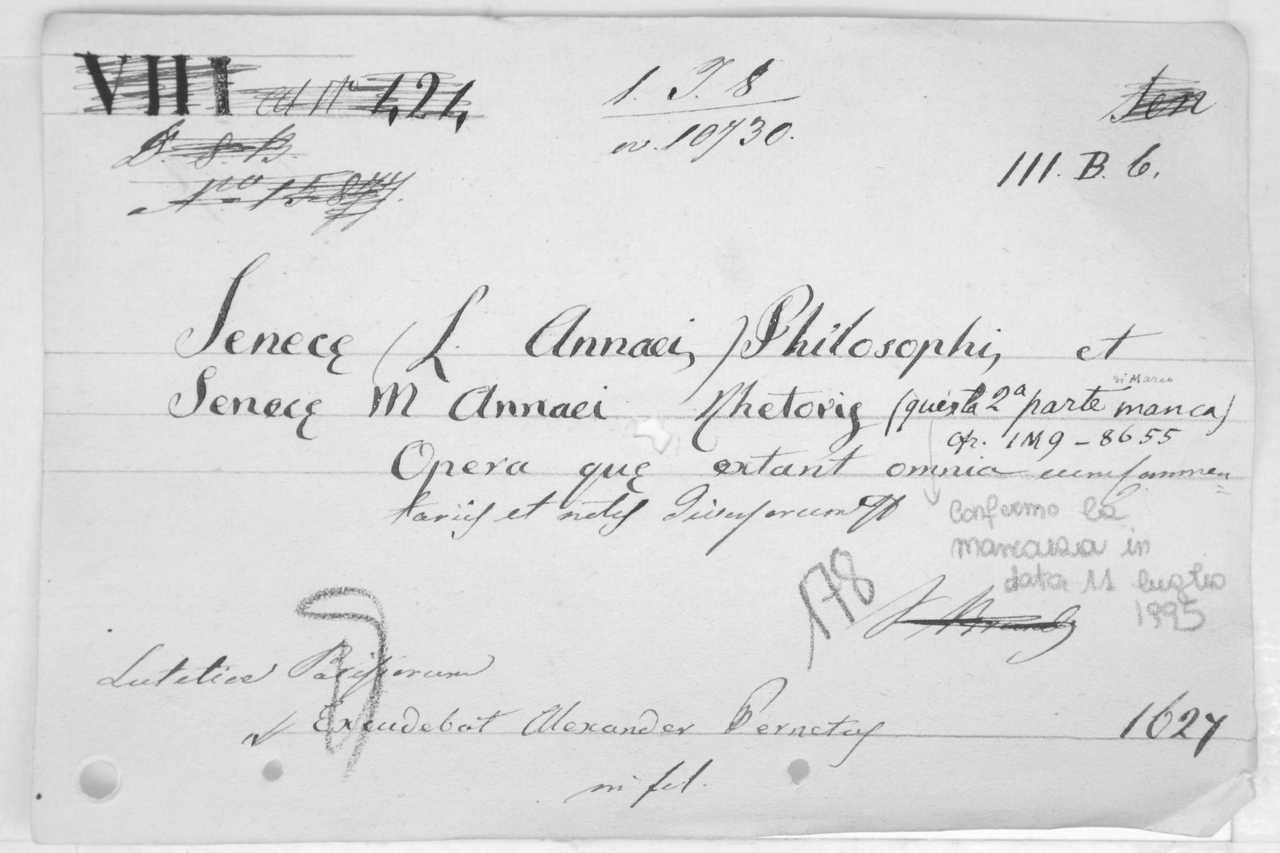 VIII 
1. T. 8
n. 10730.
III. B. 6.
Senecę (L. Annaei,) Philosophi, et
Senecę M Annaei Rhetoris (questa 2ª parte manca)
di Marco
cfr. 1 M 9 - 8655
Opera quę extant omnia cum Commen
tariis et notis
Confermo la
mancanza in
data 11 luglio
1995
178
Lutetiae Parisiorum
Excudebat Alexander Pernetus 1627
in fol.